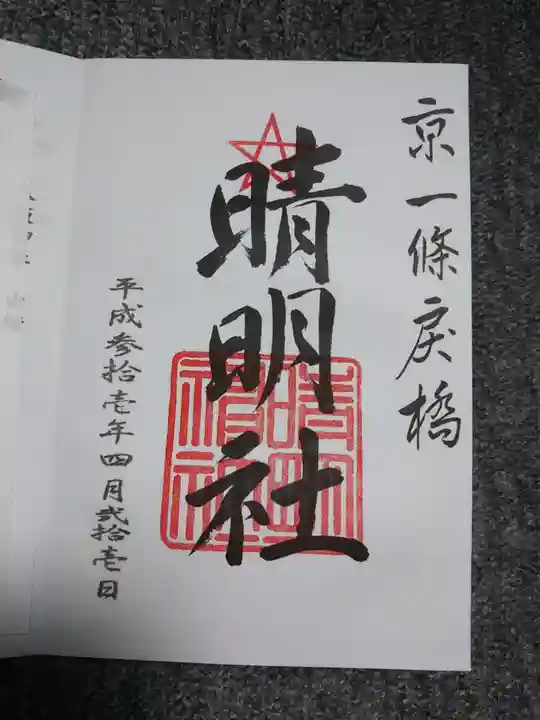 京一條戻橋
晴明社
晴明神社
平成参拾壱年四月弐拾壱日